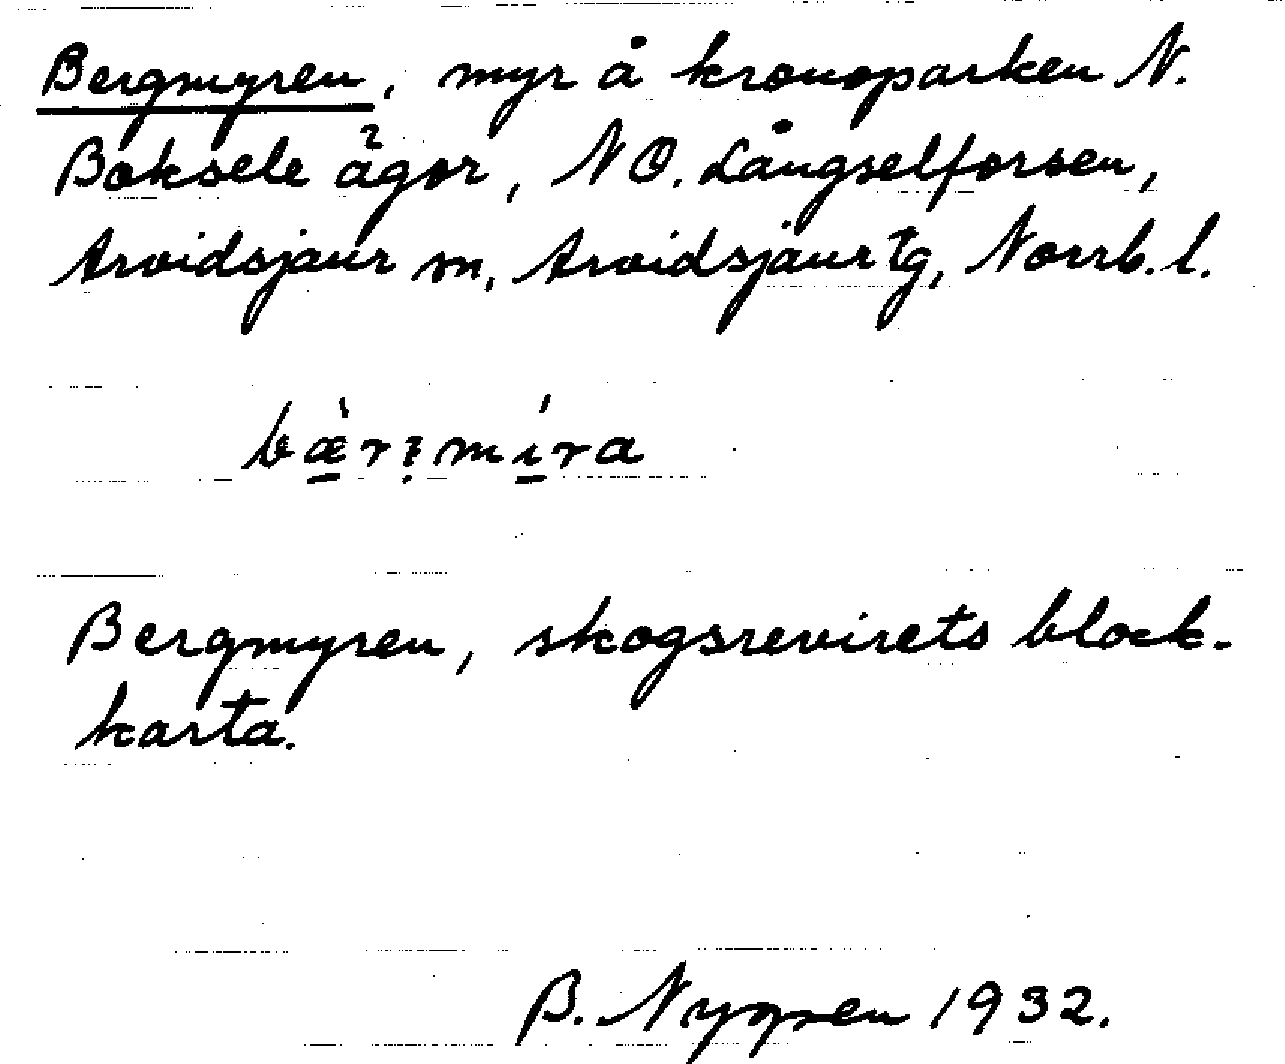 Bergmyren, myr å kronoparken N.
Boksele ägor, NO. Långselforsen,
Arvidsjaur sn, Arvidsjaur tg, Norrb. l.
bæ̀rımíra
Bergmyren, skogsrevirets block-
karta.
B. Nygren 1932.